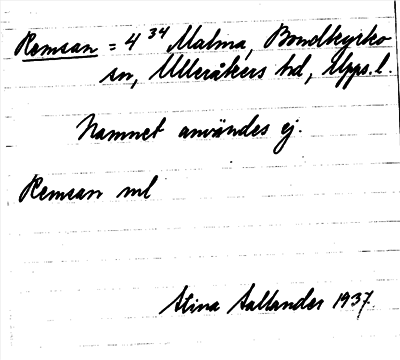 Remsan = 4³⁴ Malma, Bondkyrko
sn, Ulleråkers hd, Upps. l.
Namnet användes ej.
Remsan ml
Stina Sallander 1937.